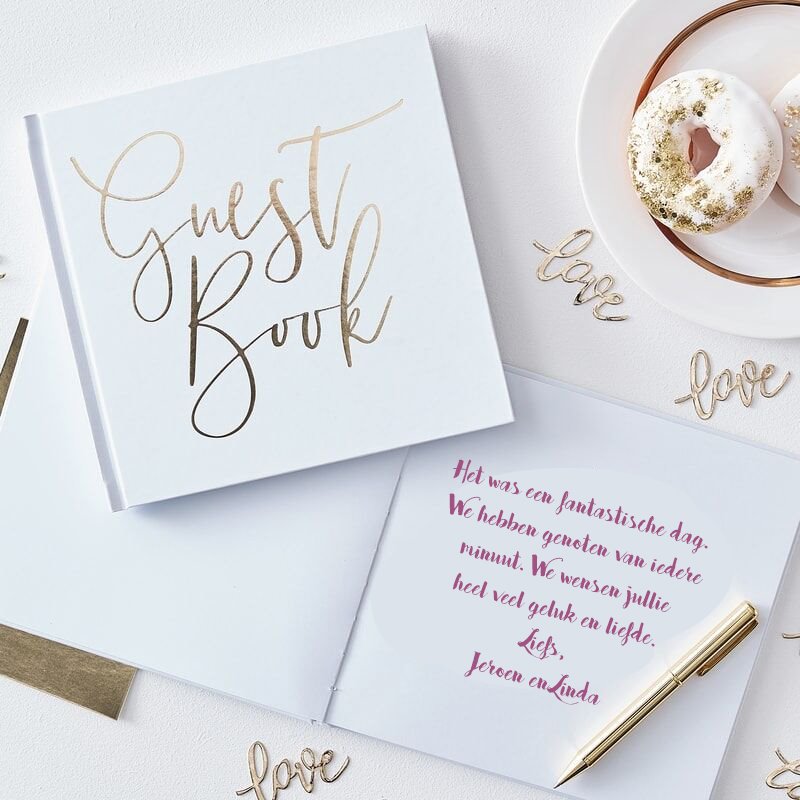 Guest
Book
love
love
Het was een fantastische dag.
We hebben genoten van iedere
minuut. We wensen jullie
heel veel geluk en liefde.
Liefs,
Jeroen enLinda
love